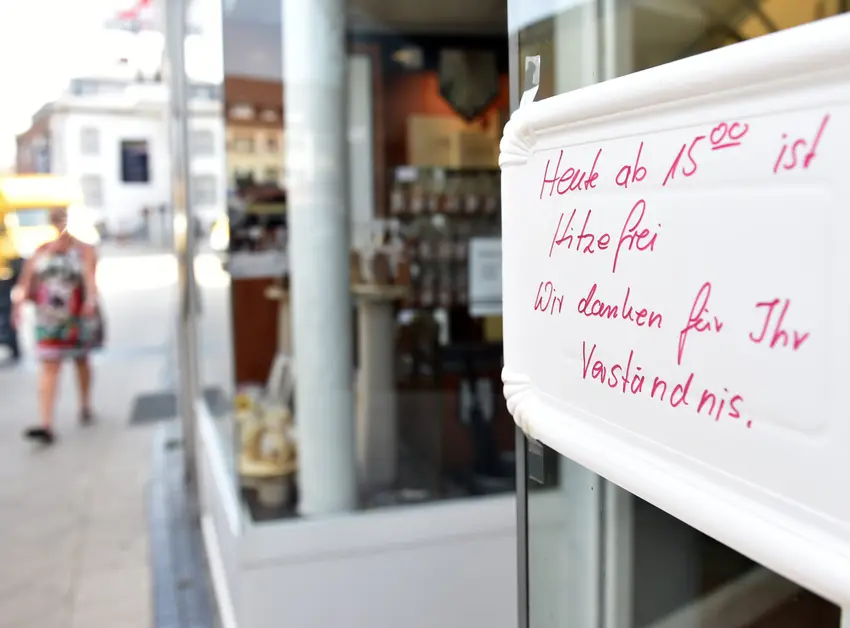 Heute ab 15 00 ist
Hitzefrei
Wir danken für Ihr
Verständnis.